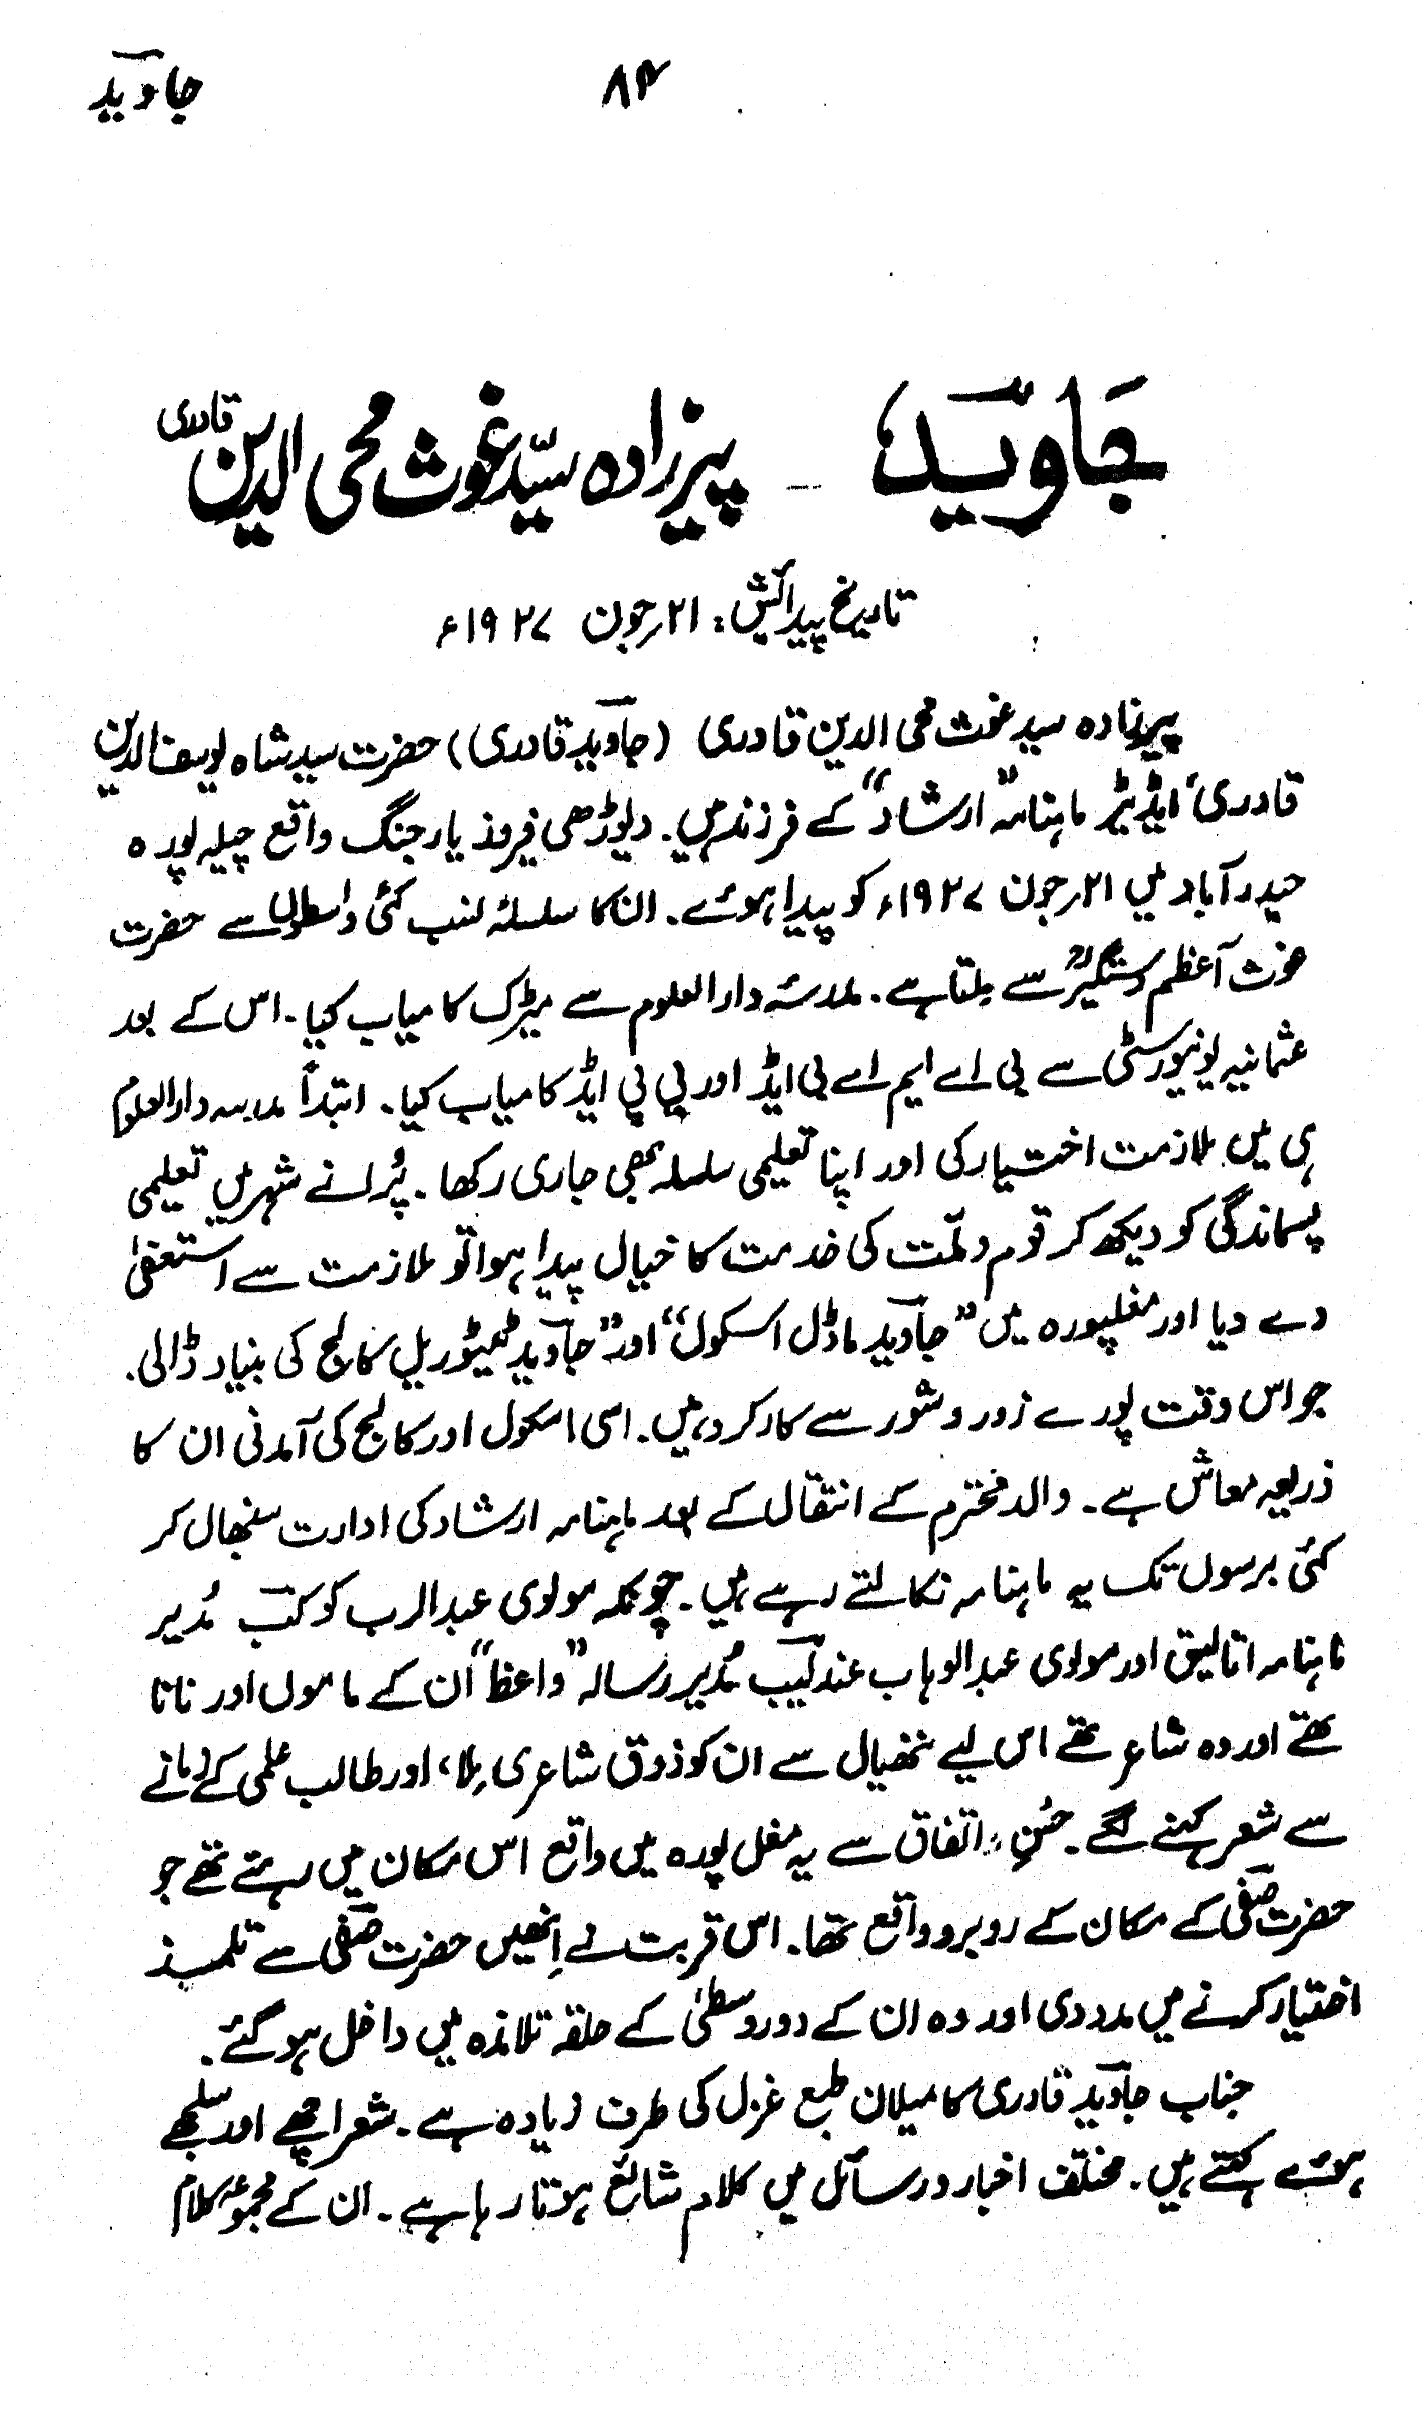 جاوید
۸۴
جاوید - پیرزادہ سیّد غوث محی الدین قادری
تاریخ پیدائش: ۲۱؍جون ۱۹۲۷ء
پیرزادہ سید غوث محی الدین قادری (جاوید قادری) حضرت سید شاہ یوسف الدین
قادری، ایڈیٹر ماہنامہ "ارشاد" کے فرزند ہیں۔ دیوڑھی فیروز یار جنگ واقع چیلہ پورہ
حیدرآباد میں ۲۱؍جون ۱۹۲۷ء کو پیدا ہوئے۔ ان کا سلسلۂ نسب کئی واسطوں سے حضرت
غوث آعظم دستگیرؒ سے ملتا ہے۔ مدرسۂ دارالعلوم سے میٹرک کامیاب کیا۔ اس کے بعد
عثمانیہ یونیورسٹی سے بی اے ایم اے بی ایڈ اور پی پی ایڈ کامیاب کیا۔ ابتداً مدرسہ دارالعلوم
ہی میں ملازمت اختیار کی اور اپنا تعلیمی سلسلہ بھی جاری رکھا۔ پُرانے شہر میں تعلیمی
پسماندگی کو دیکھ کر قوم و ملّت کی خدمت کا خیال پیدا ہوا تو ملازمت سے استعفیٰ
دے دیا اور مغلپورہ میں "جاوید ماڈل اسکول" اور "جاوید ٹیٹوریل کالج کی بنیاد ڈالی۔
جو اس وقت پورے زور و شور سے کارکرد ہیں۔ اسی اسکول اور کالج کی آمدنی ان کا
ذریعہ معاش ہے۔ والد محترم کے انتقال کے بعد ماہنامہ ارشاد کی ادارت سنبھال کر
کئی برسوں تک یہ ماہنامہ نکالتے رہے ہیں۔ چونکہ مولوی عبدالرب کوکب مُدیر
ماہنامہ اتالیق اور مولوی عبدالوہاب عندلیب مُدیر رسالہ "واعظ" اُن کے ماموں اور نانا
تھے اور وہ شاعر تھے اس لیے ننھیال سے ان کو ذوق شاعری مِلا، اور طالب علمی کے زمانے
سے شعر کہنے لگے۔ حُسنِ اتفاق سے یہ مغل پورہ میں واقع اس مکان میں رہتے تھے جو
حضرت صفی کے مکان کے روبرو واقع تھا۔ اس قربت نے اِنھیں حضرت صفی سے تلمیذ
اختیار کرنے میں مدد دی اور وہ ان کے دور وسطیٰ کے حلقہ تلامذہ میں داخل ہو گئے۔
جناب جاوید قادری کا میلان طبع غزل کی طرف زیادہ ہے۔ شعر اچھے اور سلجھے
ہوئے کہتے ہیں۔ مختلف اخبار و رسائل میں کلام شائع ہوتا رہا ہے۔ ان کے مجموعۂ کلام